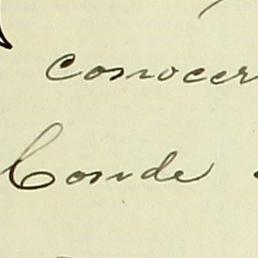 conocer
Conde